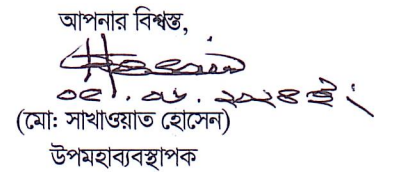 আপনার বিশ্বস্ত,
০৫.০৬.২০২৪ ইং
(মো: সাখাওয়াত হোসেন)
উপমহাব্যবস্থাপক